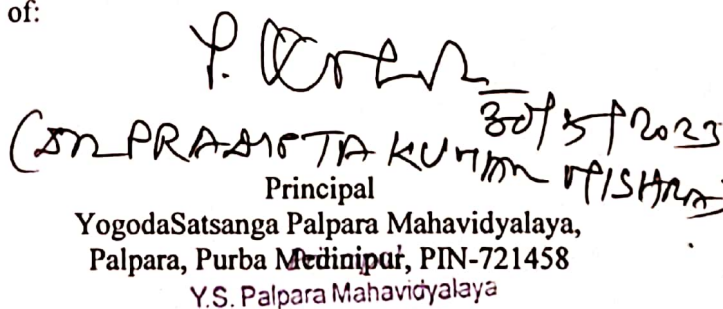 of:
30/5/2023
(DR PRADIPTA KUMAR MISHRA)
Principal
YogodaSatsanga Palpara Mahavidyalaya,
Palpara, Purba Medinipur, PIN-721458
Y.S. Palpara Mahavidyalaya